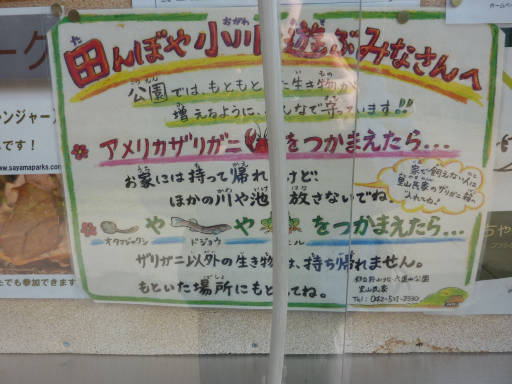 田んぼや小川で遊ぶみなさんへ
公園では、もともといた生き物が
増えるように、みんなで守っています!!
アメリカザリガニをつかまえたら...
お家には持って帰れるけど
ほかの川や池に放さないでね。
家で飼えない人は
里山民家の
ザリガニ箱へ
入れてね!
や や をつかまえたら...
オタマジャクシ ドジョウ カエル
ザリガニ以外の生き物は、持ち帰れません。
もといた場所にもどしてね。
里山民家
ンジャー
です!
www.sayamaparks.com
でも参加できます